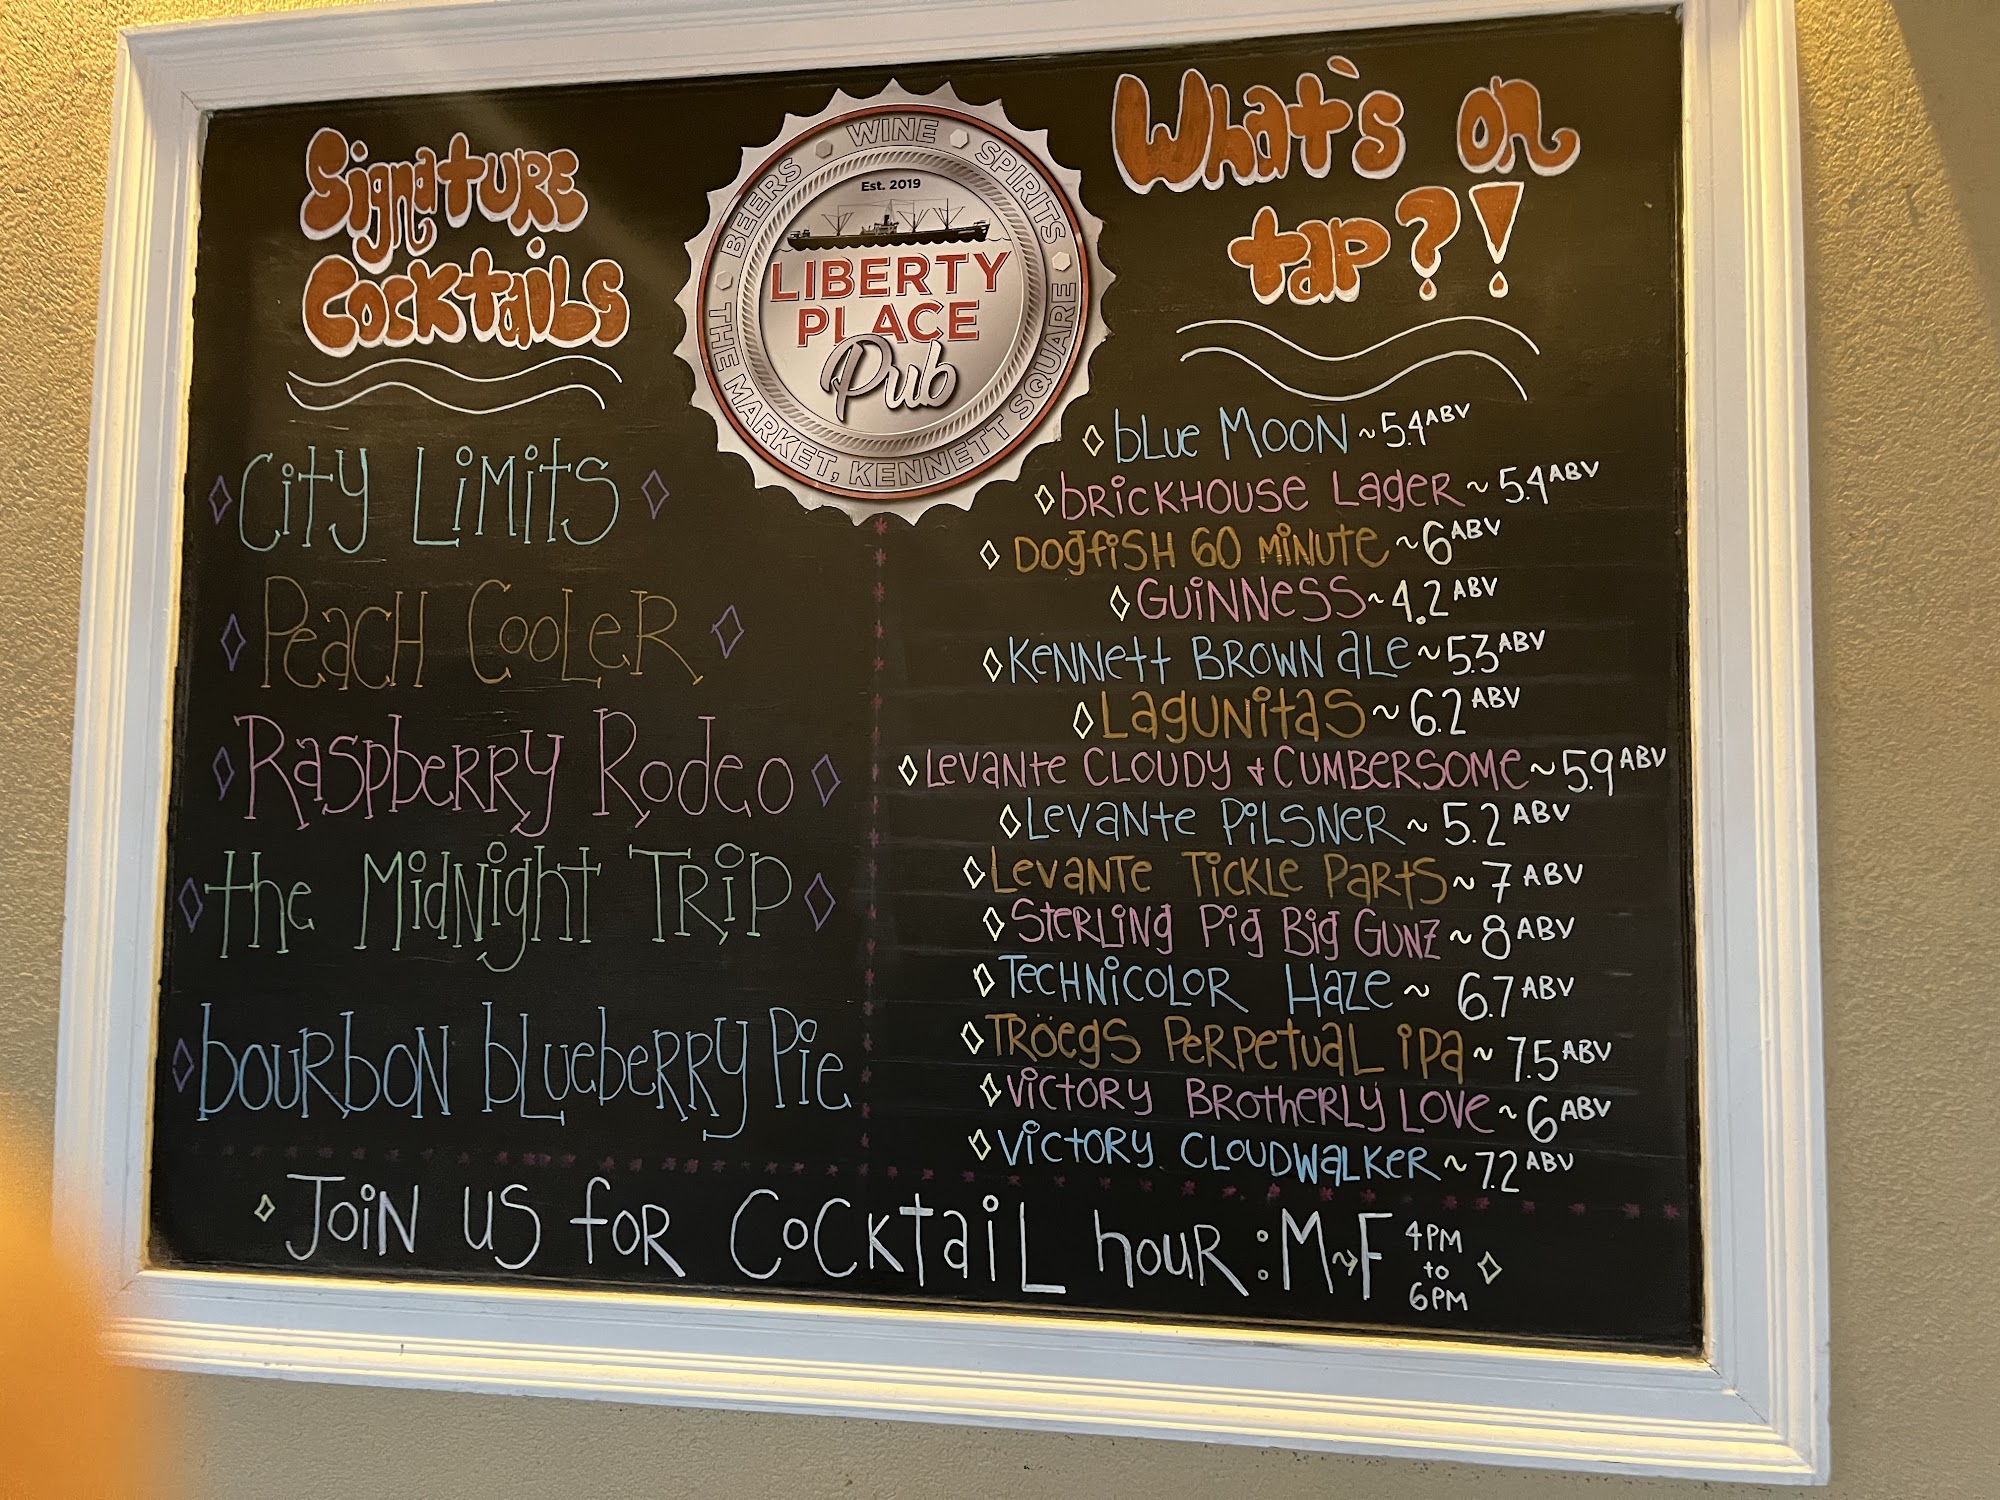 Signature
Cocktails
City Limits
Peach Cooler
Raspberry Rodeo
the Midnight Trip
bourbon blueberry Pie
BEERS WINE SPIRITS
Est. 2019
LIBERTY
PLACE
Pub
THE MARKET, KENNETT SQUARE
What's on
tap?!
blue Moon ~ 5.4 ABV
brickhouse Lager ~ 5.4 ABV
Dogfish 60 Minute ~ 6 ABV
Guinness ~ 4.2 ABV
Kennett Brown ale ~ 5.3 ABV
Lagunitas ~ 6.2 ABV
Levante Cloudy & Cumbersome ~ 5.9 ABV
Levante Pilsner ~ 5.2 ABV
Levante Tickle Parts ~ 7 ABV
Sterling Pig Big Gunz ~ 8 ABV
Technicolor Haze ~ 6.7 ABV
Tröegs Perpetual ipa ~ 7.5 ABV
Victory Brotherly Love ~ 6 ABV
Victory Cloudwalker ~ 7.2 ABV
Join us for Cocktail hour : M~F 4PM to 6PM